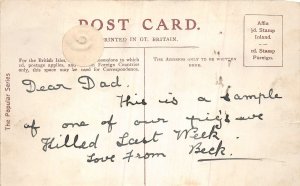 POST CARD.
PRINTED IN GT. BRITAIN.
Affix
½d. Stamp
Inland.
1d. Stamp
Foreign.
For the British Isles,
to which
postage applies,
Foreign Countries
only, this space may be used for
Correspondence.
THE ADDRESS ONLY TO BE WRITTEN
HERE.
The Popular Series
Dear Dad.
This is a sample
of one of our we
Killed Last Week
Love From Beck.